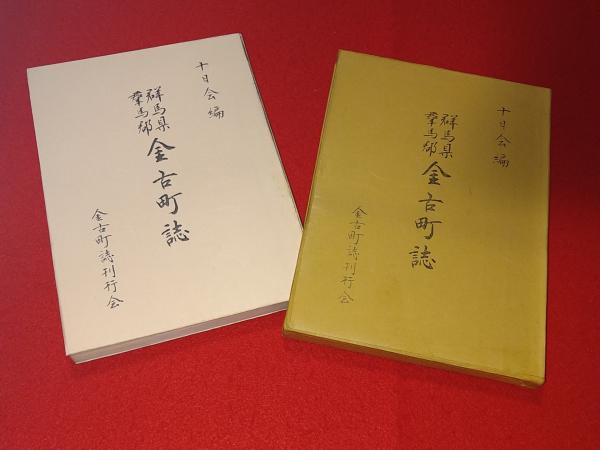 十日会編
群馬県
羣馬郷
金古町誌
金古町誌刊行会
十日会編
群馬県
羣馬郷
金古町誌
金古町誌刊行会